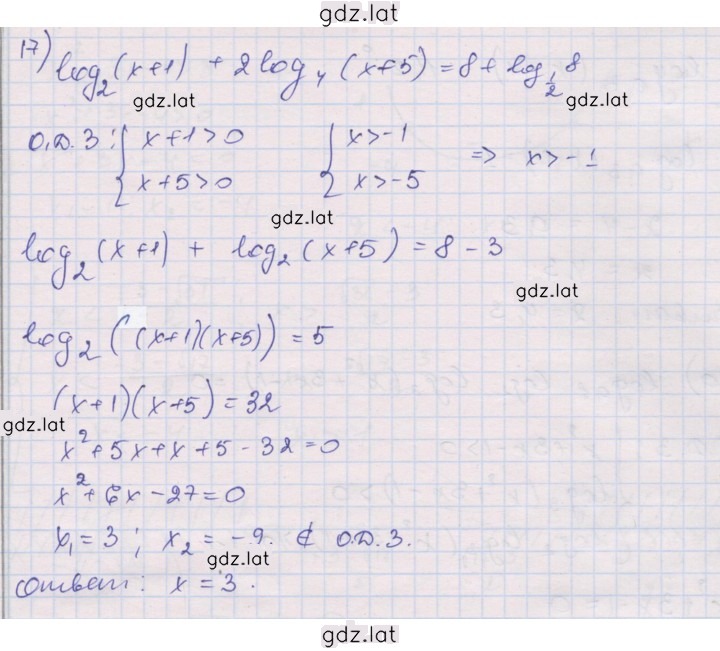 gdz.lat
17) log₂(x+1) + 2log₄(x+5) = 8 + log_{1/2} 8
gdz.lat
gdz.lat
О.Д.З: { x+1>0 { x>-1 => x>-1
{ x+5>0 { x>-5
gdz.lat
log₂(x+1) + log₂(x+5) = 8 - 3
gdz.lat
log₂((x+1)(x+5)) = 5
(x+1)(x+5) = 32
gdz.lat
x² + 5x + x + 5 - 32 = 0
x² + 6x - 27 = 0
x₁ = 3; x₂ = -9. ∉ О.Д.З.
gdz.lat
ответ: x = 3.
gdz.lat